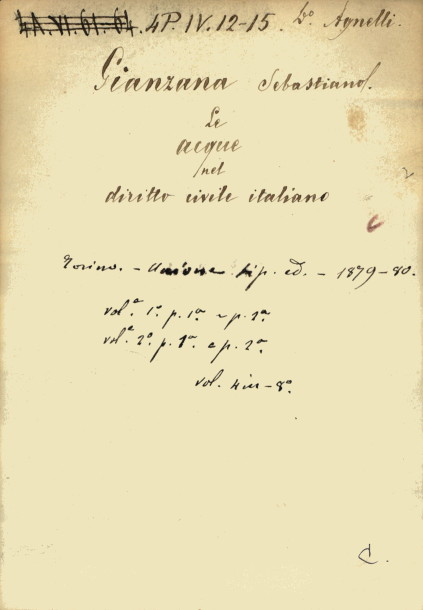 4A.VI.61-64. 4P.IV.12-15. Do Agnelli.
Gianzana Sebastiano.
Le
acque
nel
diritto civile italiano
Torino. - Unione tip. ed. - 1879-80.
vol.e 1o. p. 1a e p. 2a
vol.e 2o. p. 1a e p. 2a.
vol. 4 in-8o
C.